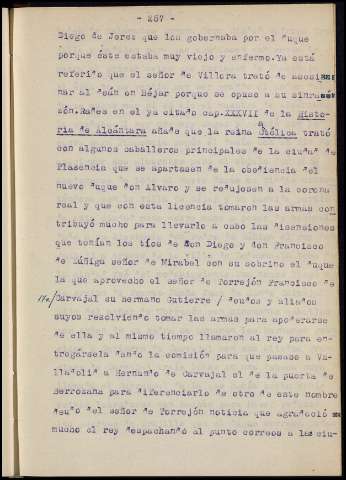 - 287 -
Diego de Jerez que los gobernaba por el duque
porque éste estaba muy viejo y enfermo. Ya está
referido que el señor de Villora trató de asesi
nar al deán en Béjar porque se opuso a su sinra
zón. Rades en el ya citado cap. XXXVII de la Histo-
ria de Alcántara añade que la reina Católica trató
con algunos caballeros principales de la ciudad de
Plasencia que se apartasen de la obediencia del
nuevo duque don Alvaro y se redujesen a la corona
real y que con esta licencia tomaron las armas con
tribuyó mucho para llevarlo a cabo las disensiones
que tenían los tíos de don Diego y don Francisco
de Zúñiga señor de Mirabel con su sobrino el duque
la que aprovecho el señor de Torrejón Francisco de
Carvajal su hermano Gutierre / deudos y aliados
suyos resolviendo tomar las armas para apoderarse
de ella y al mismo tiempo llamaron al rey para en-
tregársela dando la comisión para que pasase a Va-
lladolid a Hernando de Carvajal el de la puerta de
Berrozana para diferenciarlo de otro de este nombre
deudo el señor de Torrejón noticia que agradeció
mucho el rey despachando al punto correos a las ciu-